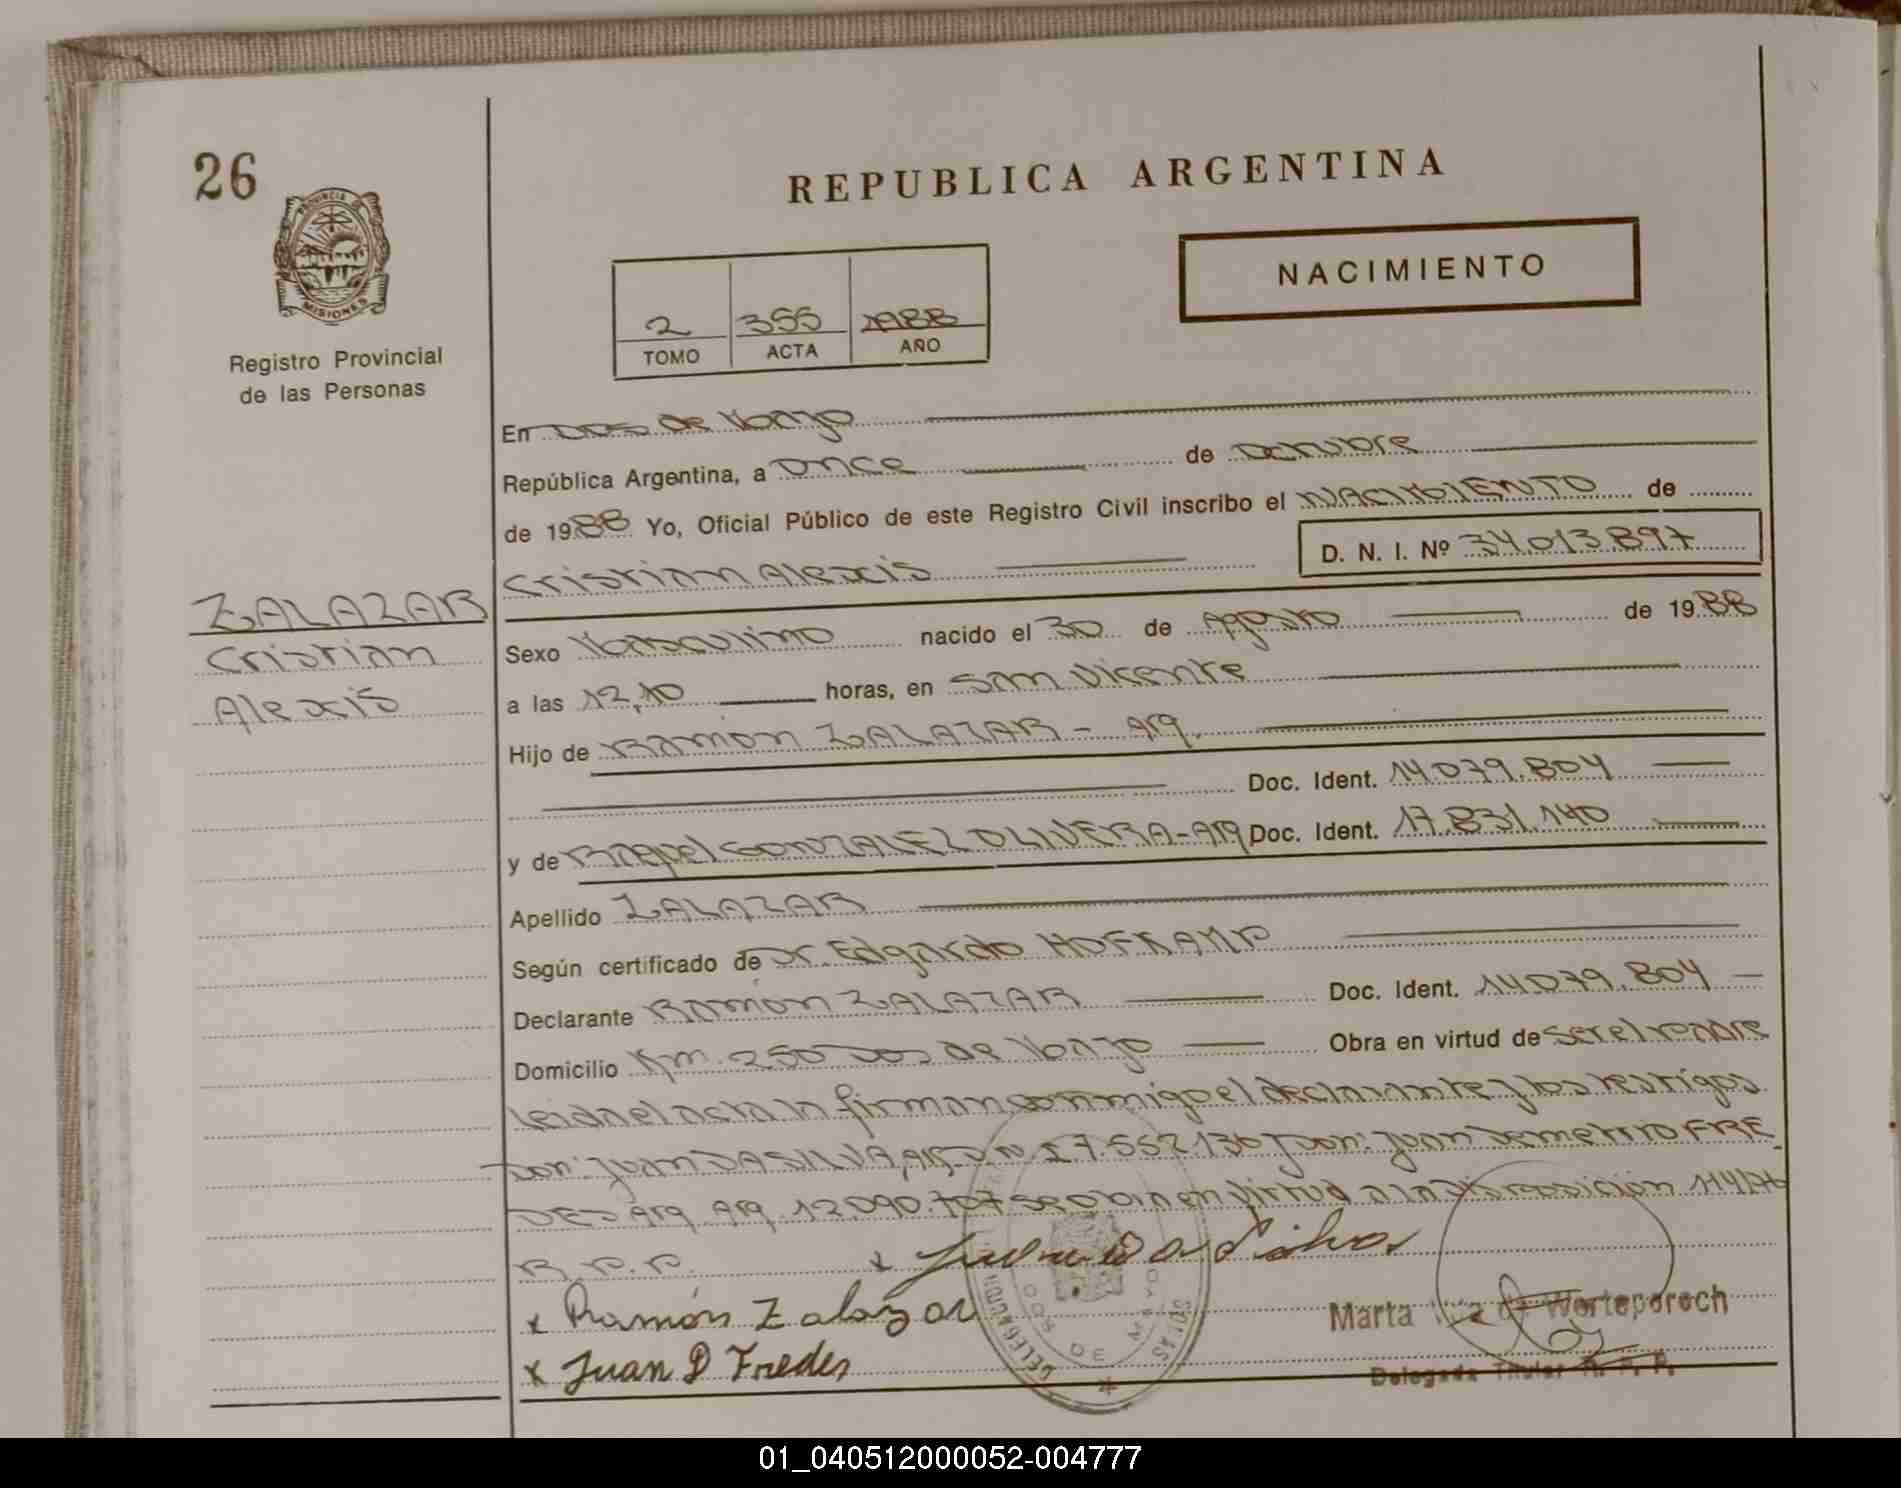 26
PROVINCIA DE
MISIONES
Registro Provincial
de las Personas
REPUBLICA ARGENTINA
NACIMIENTO
2 355 1988
TOMO ACTA AÑO
En Dos de Mayo
República Argentina, a once de Octubre
de 1988 Yo, Oficial Público de este Registro Civil inscribo el NACIMIENTO de
D. N. I. Nº 34.013.897
Cristian Alexis
ZALAZAR
Cristian
Alexis
Sexo Masculino nacido el 30 de Agosto de 1988
a las 12,10 horas, en San Vicente
Hijo de Ramón ZALAZAR - Arg.
Doc. Ident. 14.079.804
y de Raquel GONZALEZ OLIVERA - Arg Doc. Ident. 17.831.140
Apellido ZALAZAR
Según certificado de Dr. Edgardo HOFKAMP
Declarante Ramón ZALAZAR Doc. Ident. 14.079.804
Domicilio Km. 250 Dos de Mayo Obra en virtud de ser el padre
leida el acta la firman conmigo el declarante y los testigos
Don: Juan DA SILVA, Arg. D.N.I 7.552.136 y Don: Juan Demetrio FRE
DES Arg. Arg. 12.090.707 se obra en virtud a la Disposición 114/76
R.P.P.
x Juan Da Silva
x Ramón Zalazar
x Juan D Fredes
DOS DE MAYO
Marta de Worteporoch
Delegada Titular R. P. P.
01_040512000052-004777